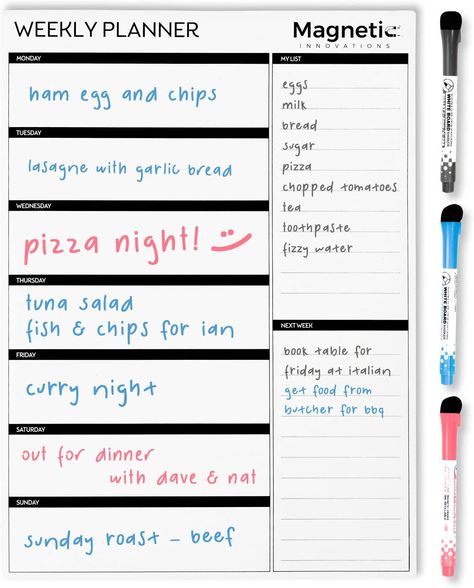 WEEKLY PLANNER
Magnetic
INNOVATIONS
MONDAY
ham egg and chips
TUESDAY
lasagne with garlic bread
WEDNESDAY
pizza night!
THURSDAY
tuna salad
fish & chips for ian
FRIDAY
curry night
SATURDAY
out for dinner
with dave & nat
SUNDAY
sunday roast – beef
MY LIST
eggs
milk
bread
sugar
pizza
chopped tomatoes
tea
toothpaste
fizzy water
NEXT WEEK
book table for
friday at italian
get food from
butcher for bbq
WHITE BOARD
WHITE BOARD